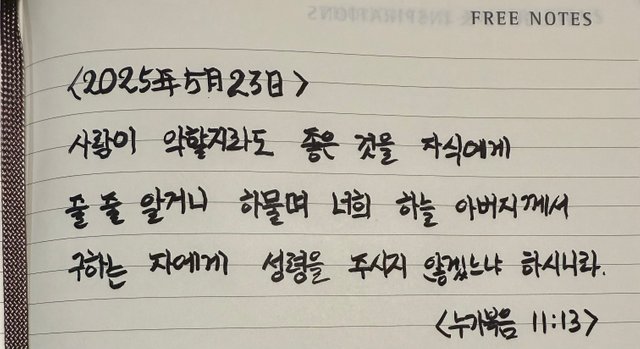 FREE NOTES
<2025年 5月 23日>
사람이 악할지라도 좋은 것을 자식에게
줄 줄 알거니 하물며 너희 하늘 아버지께서
구하는 자에게 성령을 주시지 않겠느냐 하시니라.
<누가복음 11:13>